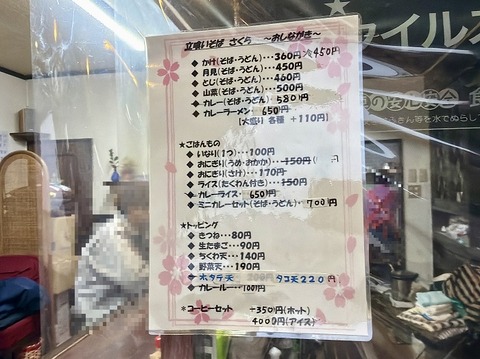 立喰いそば さくら ～おしながき～
◆ かけ(そば・うどん)･･･360円 冷450円
◆ 月見(そば・うどん)･･･450円
◆ とじ(そば・うどん)･･･460円
◆ 山菜(そば・うどん)･･･500円
◆ カレー(そば・うどん) 580円
◆ カレーラーメン 650円
【大盛り 各種 +110円】
★ごはんもの
◆ いなり(1つ)･･･100円
◆ おにぎり(うめ・おかか)･･･150円( 円
◆ おにぎり(さけ)･･･170円
◆ ライス(たくわん付き)･･･150円
◆ カレーライス 650円
◆ ミニカレーセット(そば・うどん)･ 700円
★トッピング
◆ きつね･･･80円
◆ 生たまご･･･90円
◆ ちくわ天･･･140円
◆ 野菜天･･･190円
◆ ホタテ天 タコ天220円
◆ カレールー･･･100円
*コーヒーセット +350円(ホット)
400円(アイス)
マイルス
食
ふきん等を水でぬらし